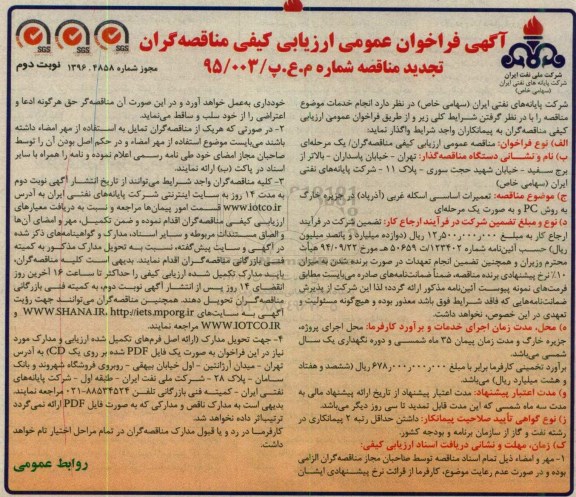 آگهی فراخوان عمومی ارزیابی کیفی مناقصه‌گران
تجدید مناقصه شماره م.ع.پ/۹۵/۰۰۳
مجوز شماره ۱۳۹۶.۴۸۵۸
نوبت دوم
شرکت ملی نفت ایران
شرکت پایانه های نفتی ایران
(سهامی خاص)
SGS
SGS
SGS
شرکت پایانه‌های نفتی ایران (سهامی خاص) در نظر دارد انجام خدمات موضوع
مناقصه را با در نظر گرفتن شرایط کلی زیر و از طریق فراخوان عمومی ارزیابی
کیفی مناقصه‌گران به پیمانکاران واجد شرایط واگذار نماید:
الف) نوع فراخوان: مناقصه عمومی ارزیابی کیفی مناقصه‌گران/ یک مرحله‌ای
ب) نام و نشانی دستگاه مناقصه‌گذار: تهران - خیابان پاسداران - بالاتر از
برج سفید - خیابان شهید حجت سوری - پلاک ۱۱ - شرکت پایانه‌های نفتی
ایران (سهامی خاص)
ج) موضوع مناقصه: تعمیرات اساسی اسکله غربی (آذرپاد) در جزیره خارگ
به روش PC و به صورت یک مرحله‌ای
د) نوع و مبلغ تضمین شرکت در فرآیند ارجاع کار: تضمین شرکت در فرآیند
ارجاع کار به مبلغ ۱۲,۵۰۰,۰۰۰,۰۰۰ ریال (دوازده میلیارد و پانصد میلیون
ریال) حسب آئین‌نامه شماره ۱۲۳۴۰۲/ت ۵۰۶۵۹ هـ مورخ ۹۴/۰۹/۲۲ هیأت
محترم وزیران و همچنین تضمین انجام تعهدات در صورت برنده شدن به میزان
۱۰٪ نرخ پیشنهادی برنده مناقصه، ضمناً ضمانت‌نامه‌های صادره می‌بایست مطابق
فرمت‌های نمونه پیوست آئین‌نامه مذکور ارائه گردد؛ لذا این شرکت از پذیرش
ضمانت‌نامه‌هایی که فاقد شرایط فوق باشد معذور بوده و هیچ‌گونه مسئولیت و
تعهدی در این خصوص، نخواهد داشت.
ه) محل، مدت زمان اجرای خدمات و برآورد کارفرما: محل اجرای پروژه،
جزیره خارگ و مدت زمان پیمان ۳۵ ماه شمسی و دوره نگهداری یک سال
شمسی می‌باشد.
برآورد تخمینی کارفرما برابر با مبلغ ۶۷۸,۰۰۰,۰۰۰,۰۰۰ ریال (ششصد و هفتاد
و هشت میلیارد ریال) می‌باشد.
و) مدت اعتبار پیشنهاد: مدت اعتبار پیشنهاد از تاریخ ارائه پیشنهاد مالی به
مدت سه ماه شمسی که این مدت قابل تمدید تا سی روز دیگر می‌باشد.
ز) نوع گواهی تأیید صلاحیت پیمانکار: داشتن حداقل رتبه ۲ پیمانکاری در
رشته نفت و گاز از سازمان برنامه و بودجه کشور.
ک) زمان، مهلت و نشانی دریافت اسناد ارزیابی کیفی:
۱- مهر و امضاء ذیل تمام اسناد مناقصه توسط صاحبان مجاز مناقصه‌گران الزامی
بوده و در صورت عدم رعایت موضوع، کارفرما از قرائت نرخ پیشنهادی ایشان
خودداری به‌عمل خواهد آورد و در این صورت آن مناقصه‌گر حق هرگونه ادعا و
اعتراضی را از خود سلب و ساقط می‌نماید.
۲- در صورتی که هریک از مناقصه‌گران تمایل به استفاده از مهر امضاء داشته
باشند می‌بایست موضوع استفاده از مهر امضاء و در حکم اصل بودن آن را توسط
صاحبان مجاز امضای خود طی نامه رسمی اعلام نموده و نامه را همراه با سایر
اسناد در پاکت (ب) ارائه نمایند.
۳- کلیه مناقصه‌گران واجد شرایط می‌توانند از تاریخ انتشار آگهی نوبت دوم
به مدت ۱۴ روز به سایت اینترنتی شرکت پایانه‌های نفتی ایران به آدرس
www.Iotco.ir قسمت امور پیمان‌ها مراجعه و نسبت به دریافت معیارهای
ارزیابی کیفی مناقصه‌گران اقدام نموده و ضمن تکمیل، مهر و امضای آن‌ها
و الصاق مستندات مربوطه و سایر اسناد، مدارک و گواهینامه‌های ذکر شده
در آگهی و سایت پیش‌گفته، نسبت به تحویل مدارک مذکور به کمیته
فنی بازرگانی مناقصه‌گران اقدام نمایند. بدیهی است کلیه مناقصه‌گران،
باید مدارک تکمیل شده ارزیابی کیفی را حداکثر تا ساعت ۱۶ آخرین روز
انقضای ۱۴ روز پس از انتشار آگهی نوبت دوم، به کمیته فنی بازرگانی
مناقصه‌گران تحویل دهند. همچنین مناقصه‌گران می‌توانند، جهت رؤیت
آگهی به سایت‌های WWW.SHANA.IR، http://iets.mporg.ir و
WWW.IOTCO.IR مراجعه نمایند.
۴- جهت تحویل مدارک (ارائه اصل فرم‌های تکمیل شده ارزیابی و مدارک مورد
نیاز در این فراخوان به صورت یک فایل PDF شده بر روی یک CD) به آدرس
تهران - میدان آرژانتین - اول خیابان بیهقی - روبروی فروشگاه شهروند و بانک
سامان - پلاک ۲۸ - شرکت ملی نفت ایران - طبقه اول - شرکت پایانه‌های
نفتی ایران - کمیته فنی بازرگانی تلفن ۸۸۵۳۴۵۲۴-۰۲۱ مراجعه نمایند.
بدیهی است به مدارک ناقص و مدارکی که به صورت فایل PDF ارائه نمی‌گردد
ترتیب‌اثر داده نخواهد شد.
کارفرما در رد و یا قبول مدارک مناقصه‌گران در تمام مراحل اختیار تام خواهد
داشت.
روابط عمومی